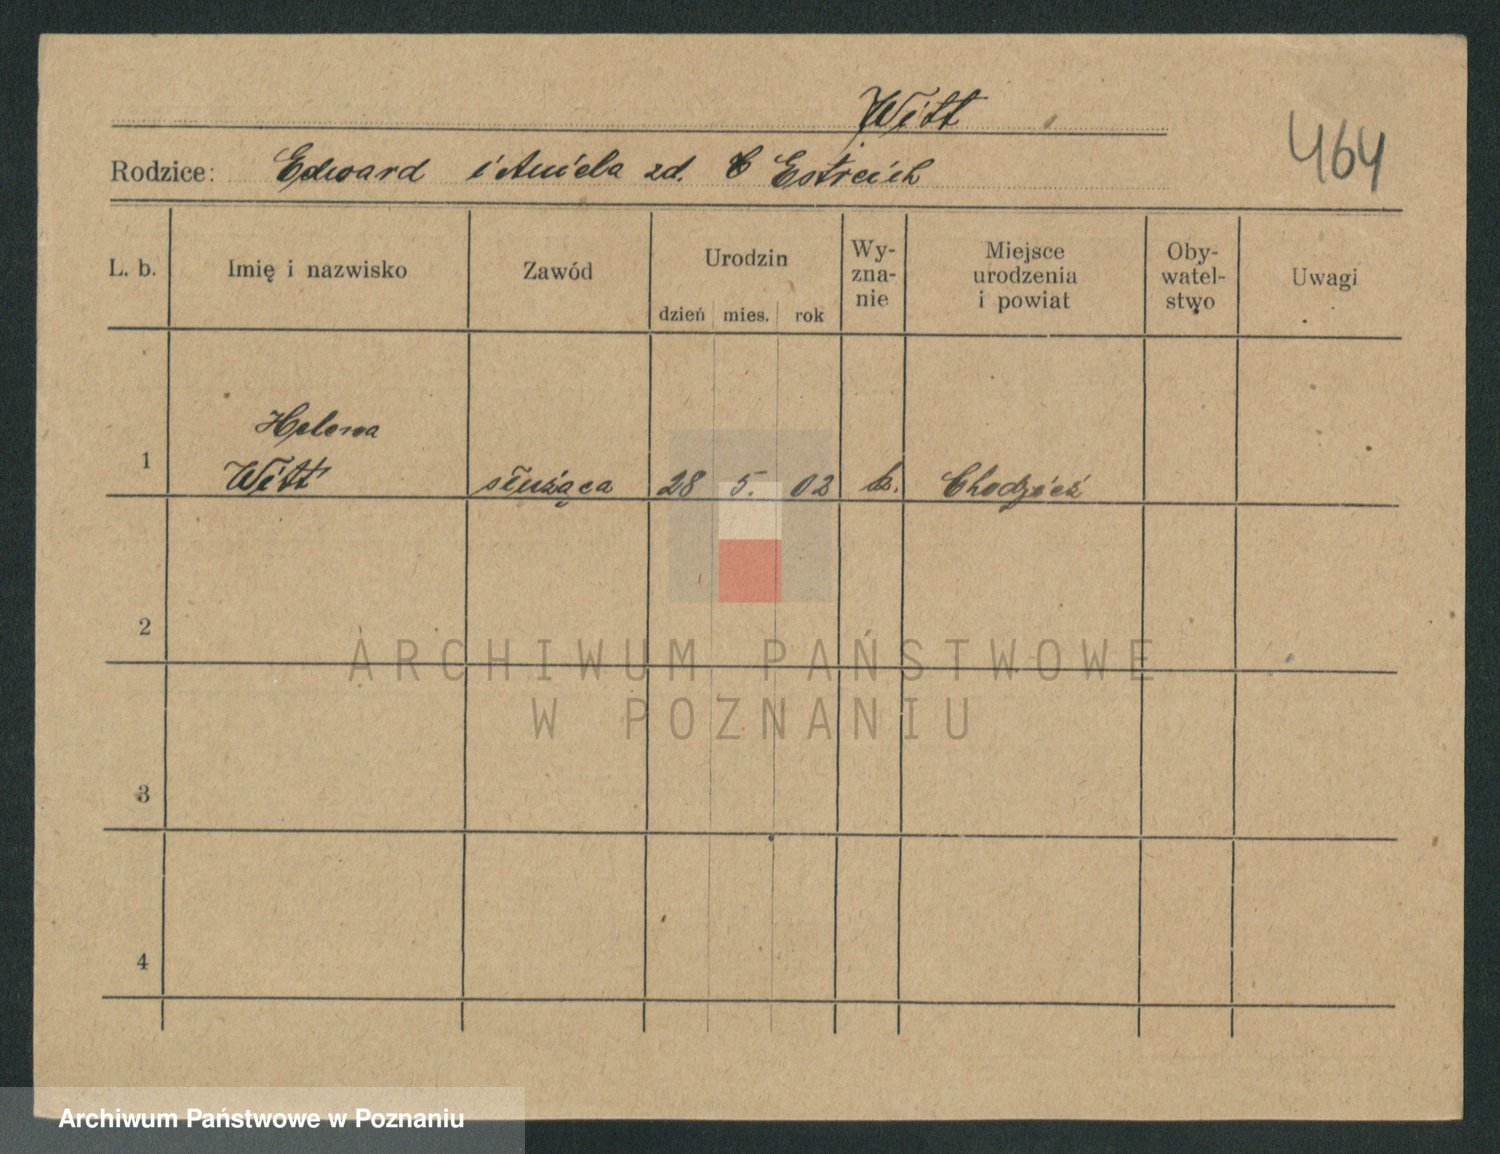 Witt
464
Rodzice: Edward i Aniela zd. Estreich
L. b.
Imię i nazwisko
Zawód
Urodzin
dzień mies. rok
Wy-
zna-
nie
Miejsce
urodzenia
i powiat
Oby-
watel-
stwo
Uwagi
Helena
1 Witt służąca 28 5. 02 k. Chodzież
2
ARCHIWUM PAŃSTWOWE
W POZNANIU
3
4
Archiwum Państwowe w Poznaniu